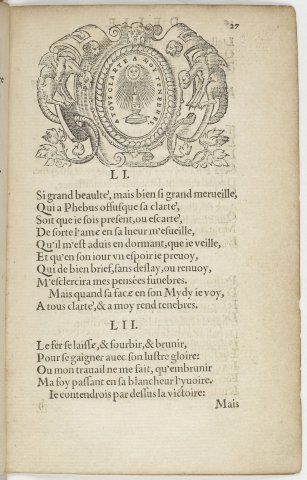 27
A TOUS CLARTE A MOY TENEBRES.
LI.
Si grand beaulté, mais bien si grand merueille,
Qui a Phebus offusque sa clarté,
Soit que ie sois present, ou escarté,
De sorte l'ame en sa lueur m'esueille,
Qu'il m'est aduis en dormant, que ie veille,
Et qu'en son iour vn espoir ie preuoy,
Qui de bien brief, sans deslay, ou renuoy,
M'esclercira mes pensées funebres.
Mais quand sa face en son Mydy ie voy,
A tous clarté, & a moy rend tenebres.
LII.
Le fer se laisse, & fourbir, & brunir,
Pour se gaigner auec son lustre gloire:
Ou mon trauail ne me fait, qu'embrunir
Ma foy passant en sa blancheur l'yuoire.
Ie contendrois par dessus la victoire:
Mais